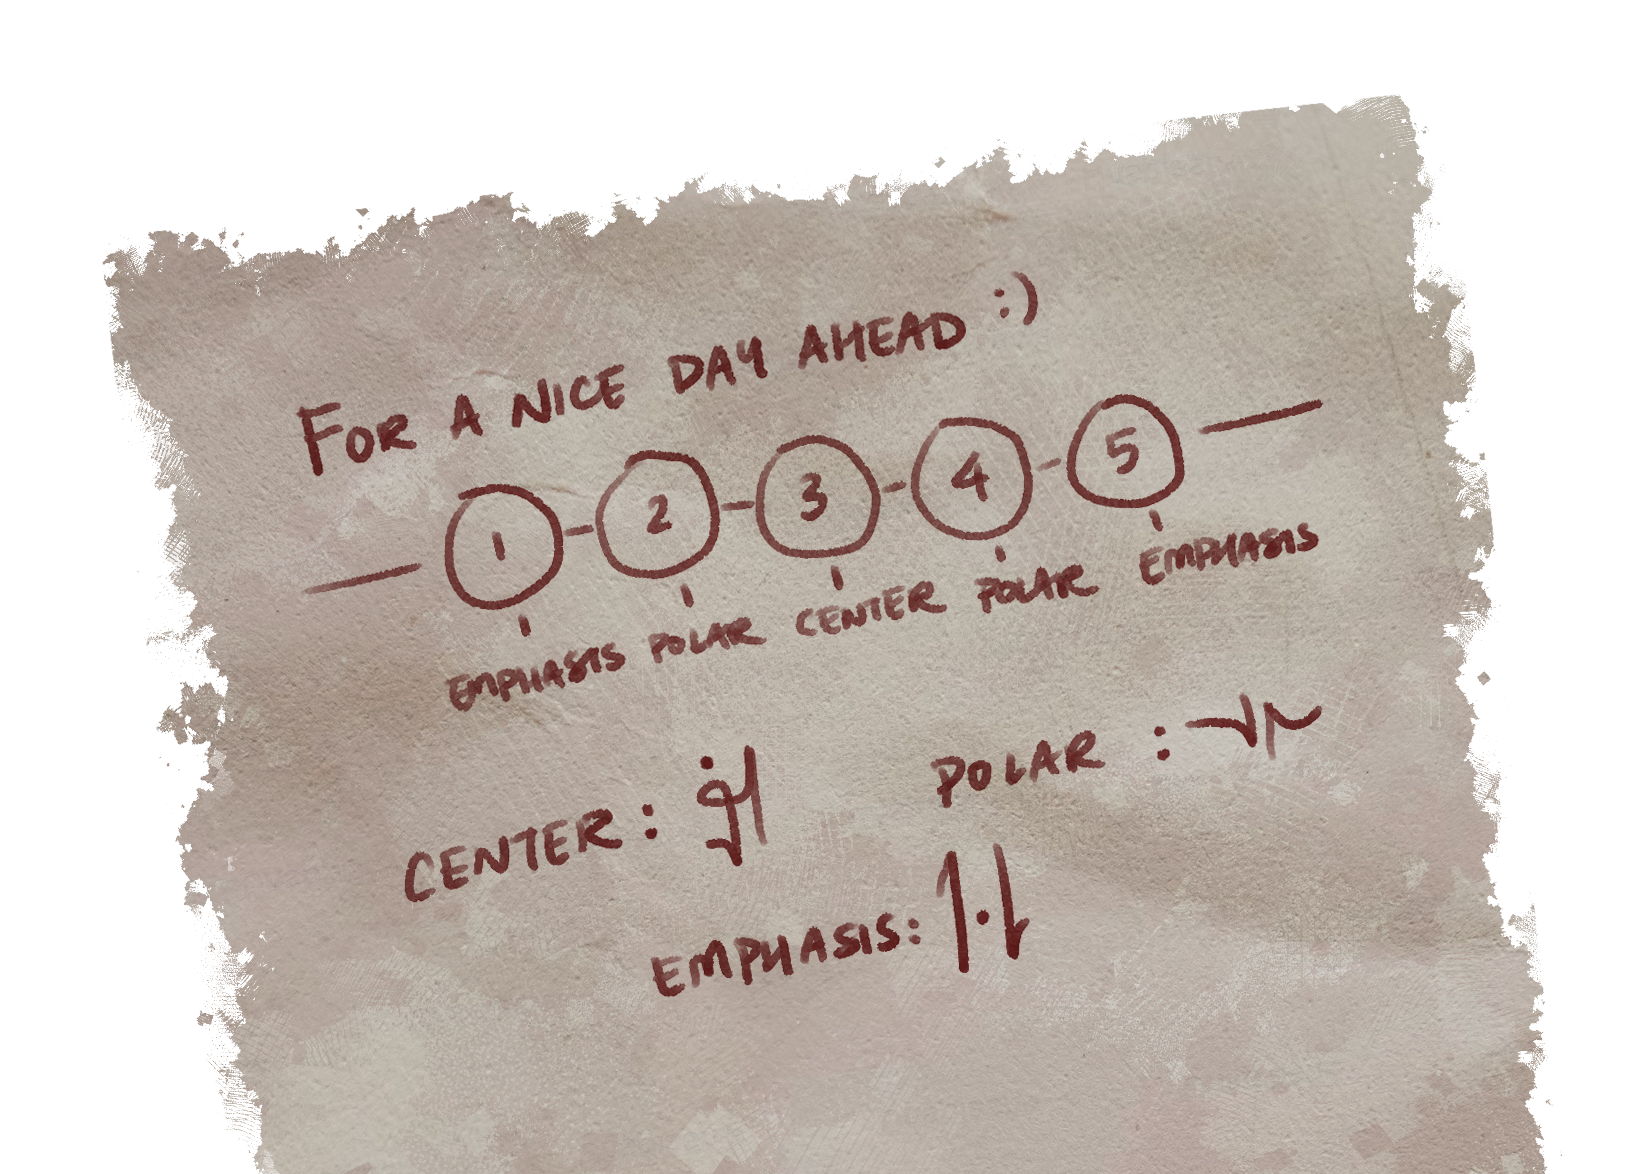 FOR A NICE DAY AHEAD :)
1 - 2 - 3 - 4 - 5
EMPHASIS POLAR CENTER POLAR EMPHASIS
CENTER: POLAR :
EMPHASIS: